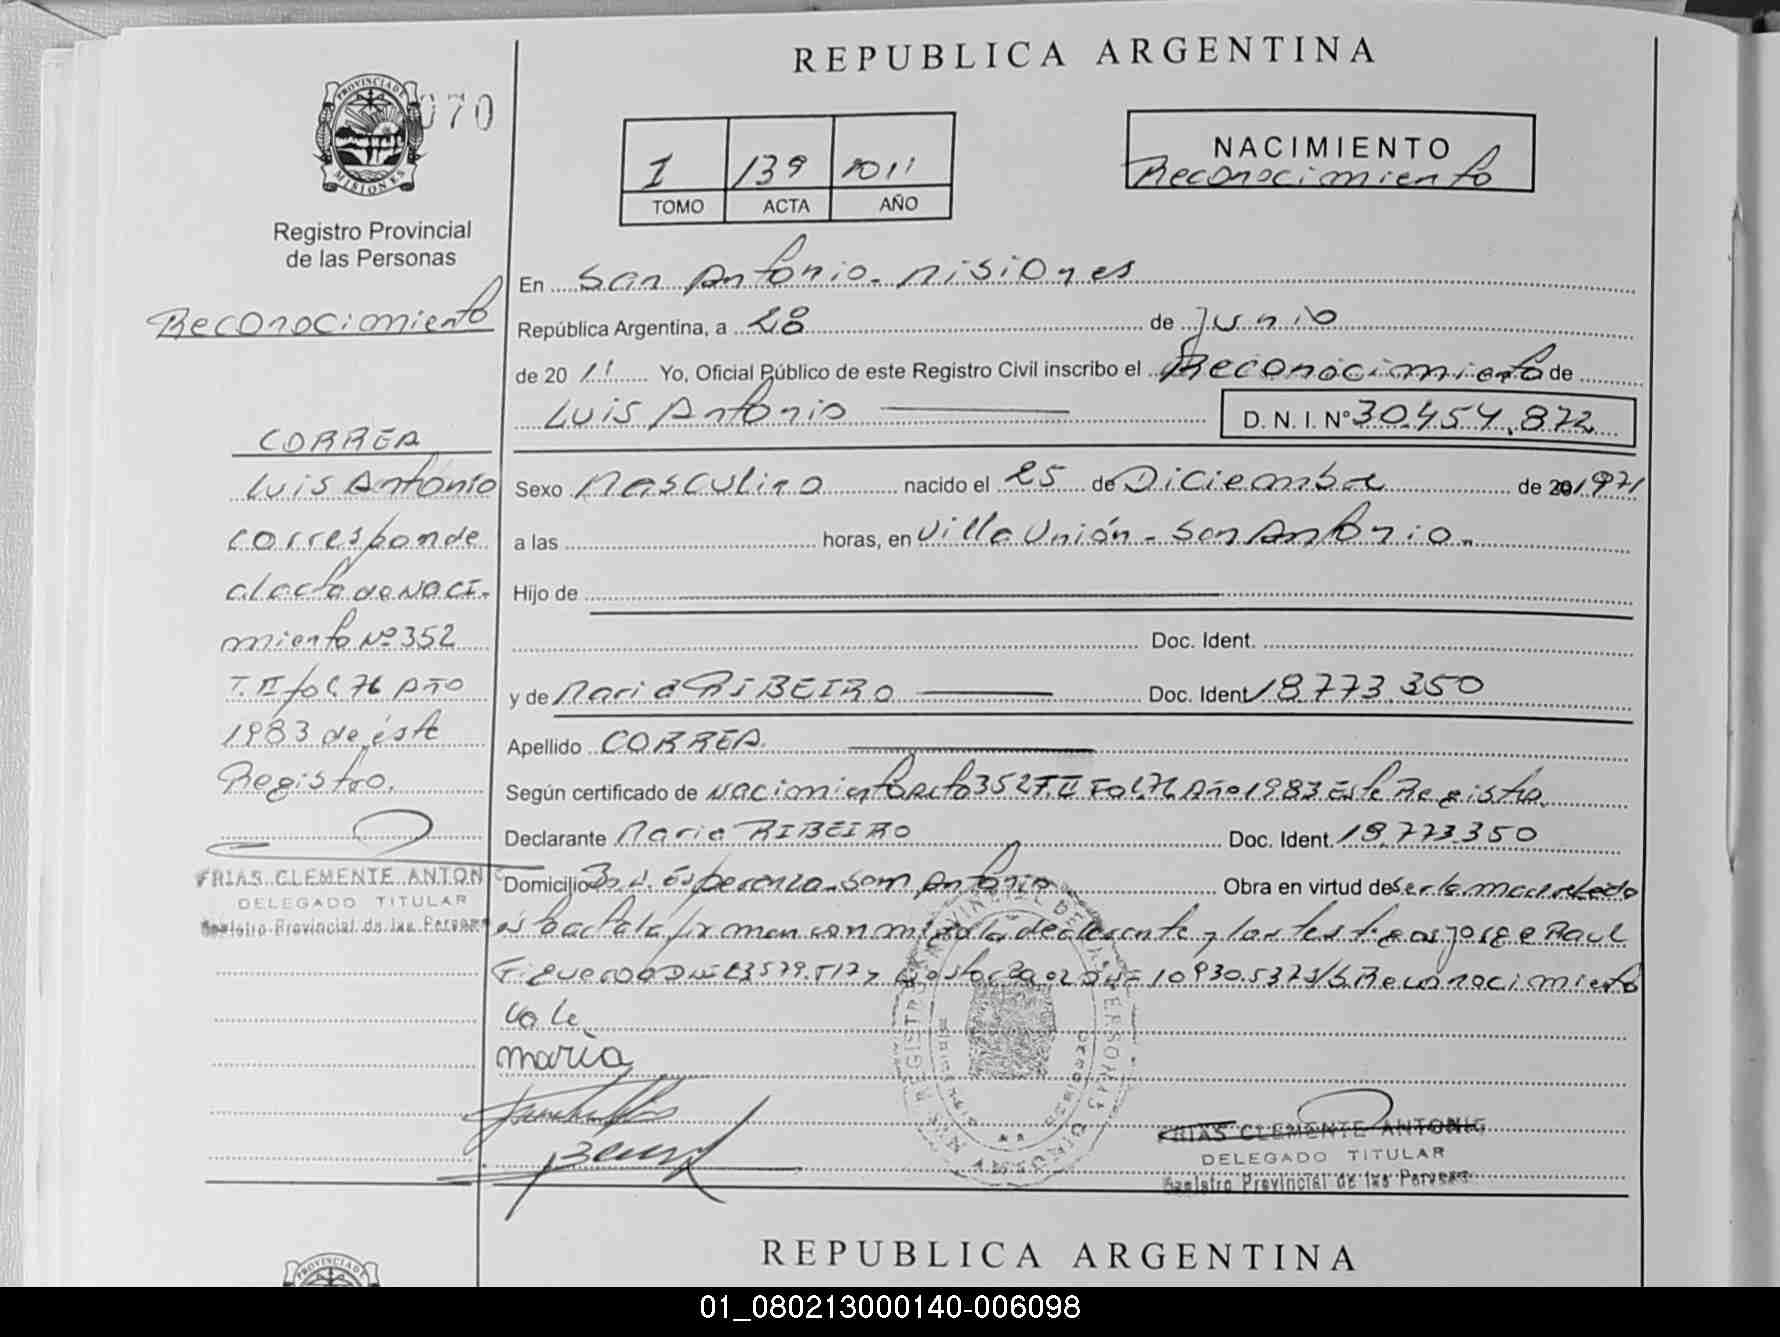 REPUBLICA ARGENTINA
070
PROVINCIA DE MISIONES
Registro Provincial
de las Personas
I 139 2011
TOMO ACTA AÑO
NACIMIENTO
Reconocimiento
Reconocimiento
CORREA
Luis Antonio
corresponde
al acta de NACI-
miento Nº 352
T. II fol. 76 AÑO
1983 de éste
Registro.
FRIAS CLEMENTE ANTONIO
DELEGADO TITULAR
Registro Provincial de las Personas
En San Antonio - Misiones
República Argentina, a 28 de Junio
de 20 11 Yo, Oficial Público de este Registro Civil inscribo el Reconocimiento de
Luis Antonio D. N. I. Nº 30.454.872
Sexo Masculino nacido el 25 de Diciembre de 20 1971
a las horas, en Villa Unión - San Antonio.
Hijo de
Doc. Ident.
y de Maria RIBEIRO Doc. Ident 18.773.350
Apellido CORREA
Según certificado de Nacimiento Acta 352 T. II Fol. 76 Año 1983 Este Registro.
Declarante Maria RIBEIRO Doc. Ident. 18.773.350
Domicilio Esperanza - San Antonio Obra en virtud de ser la madre Leida
ésta acta la firman con migo la declarante y los testigos Jorge Raul
Figueroa DNI 23579.517 y 10930.537 S/R Reconocimiento
Vale
maria
FRIAS CLEMENTE ANTONIO
DELEGADO TITULAR
Registro Provincial de las Personas
REPUBLICA ARGENTINA
PROVINCIA DE
01_080213000140-006098